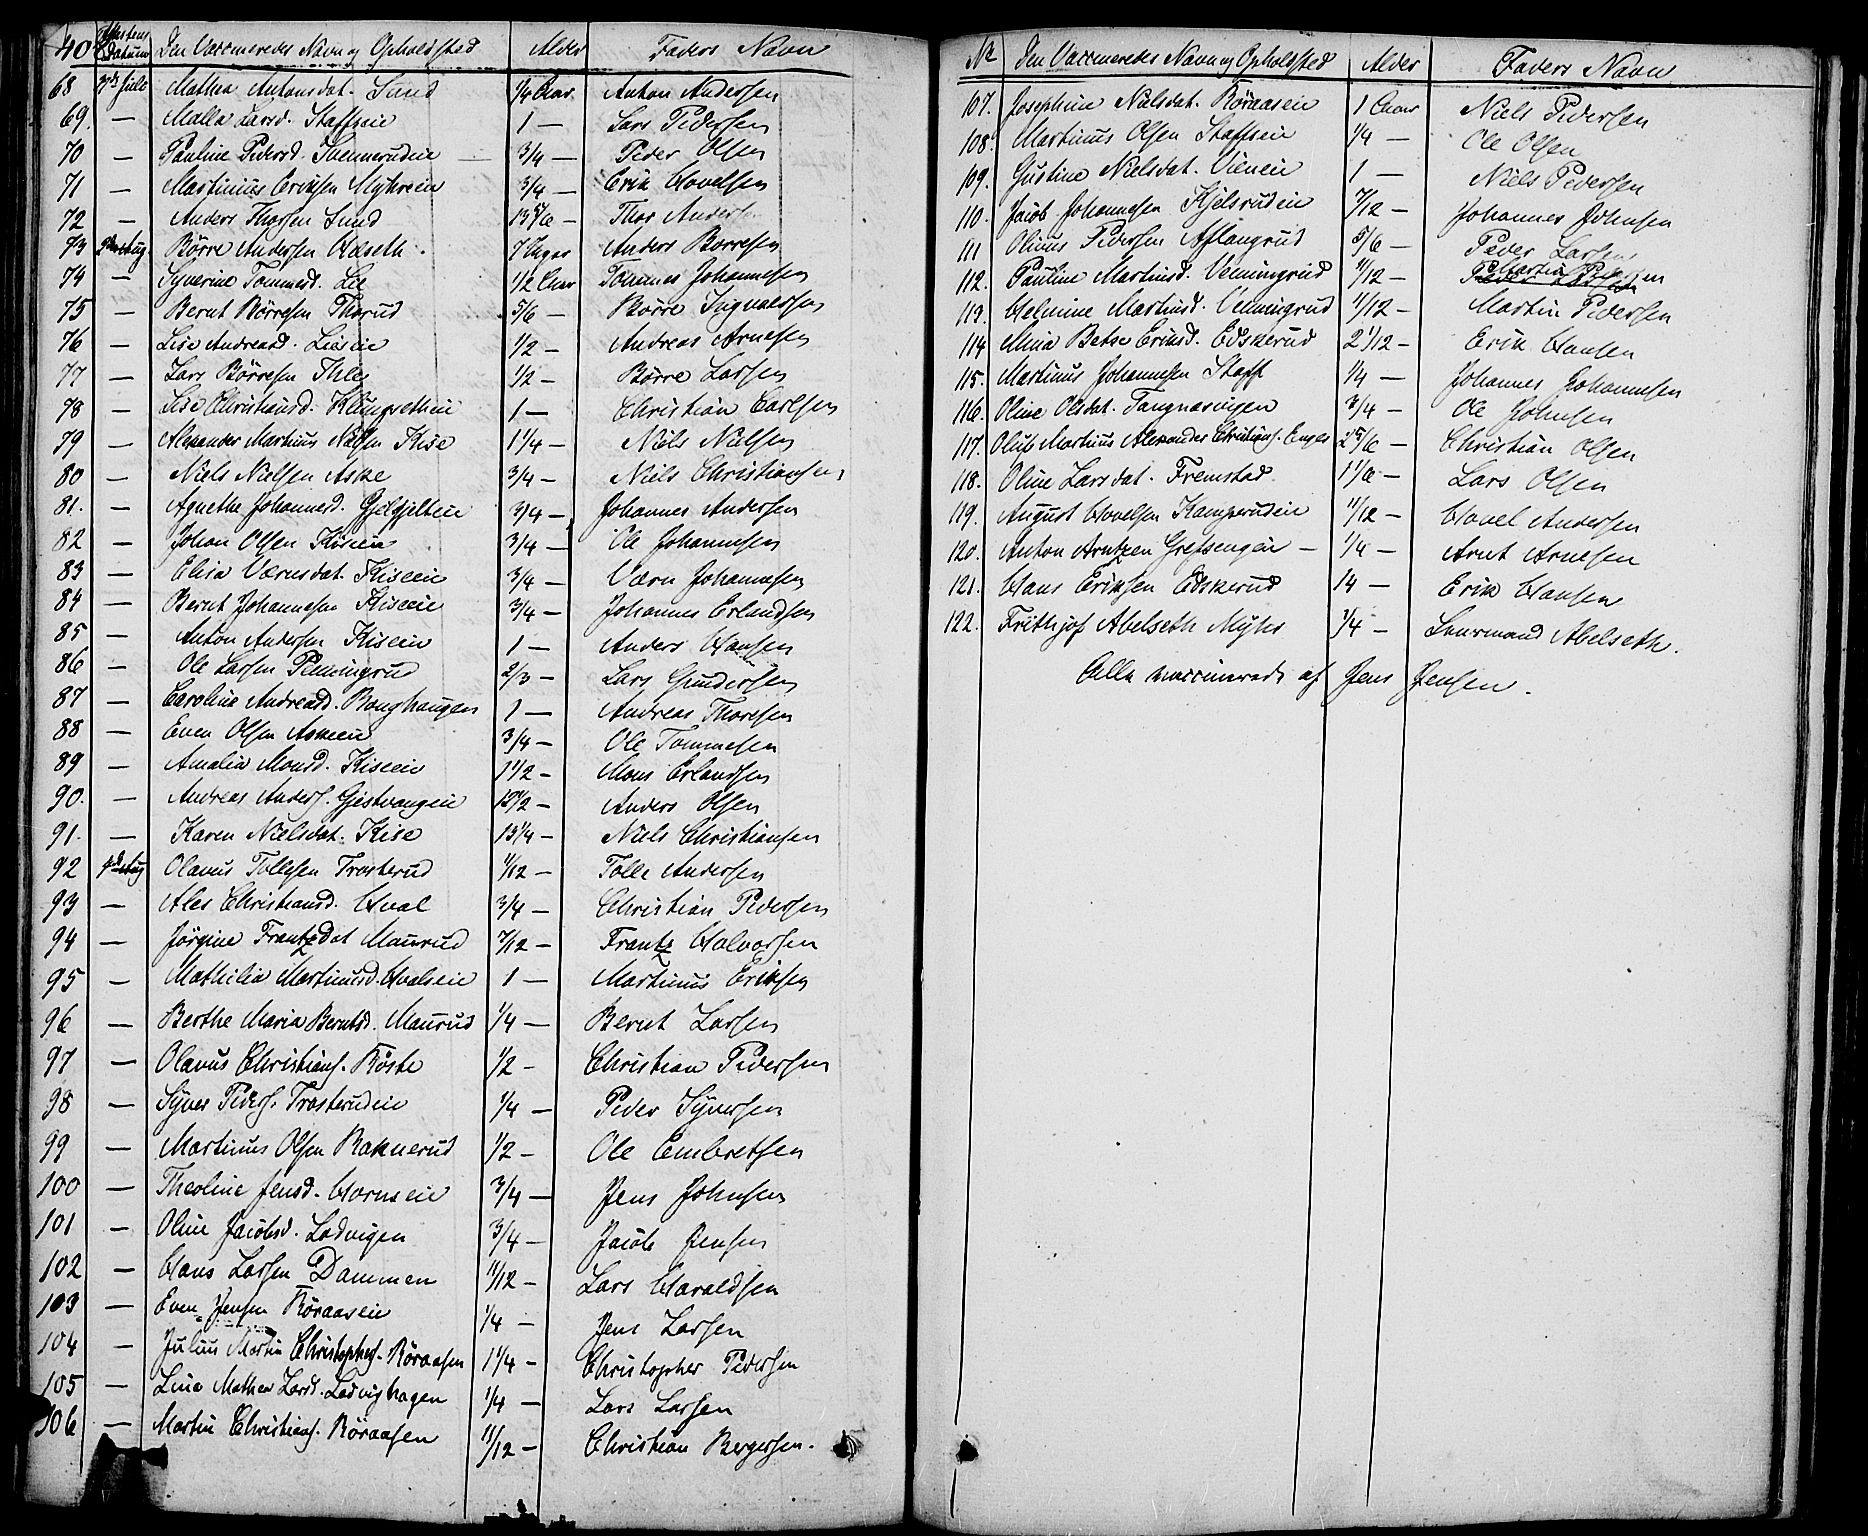 40 Datum Den Vaccineredes Navn og Opholdsted Alder Faders Navn
68 7de Juli Mathea Antonsdat. Sund 1/4 Aar Anton Andersen
69. — Malla Larsd. Staffseie 1 — Lars Pedersen
70 — Pauline Pedersd. Svennerudeie 3/4 — Peder Olsen
71 — Martinius Eriksen Myhreeie 3/4 — Erik Hovelsen
72 — Anders Thorsen Sund 13 5/6 — Thor Anderse
73 Aug. Børre Andersen Adseth. 7 Uger Anders Borresen
74 — Syverine Tommesd. Lie 1/2 Aar Tommes Johannesen
75 — Bernt Børresen Thorud 5/6 — Børre Ingvaldsen
76 — Lise Andreasd. Lieseie 1/2 — Andreas Arnesen
77 — Lars Børresen Ihle 1/2 — Børre Larsen
78 — Lise Christiansd. Klungretheie 1 — Christian Carlsen
79 — Alexander Martinius Nielsen Kise 1 1/4 — Niels Nielsen
80 — Niels Nielsen Aske 3/4 — Niels Christiansen
81. — Agnethe Johannesd. Gjelgjilteie 3/4 — Johannes Andersen
82 — Johan Olsen Kiseeie 3/4 — Ole Johannesen
83 — Elisa Værnsdat. Kiseeie 3/4 — Værn Johannesen
84 — Bernt Johannesen Kiseeie 3/4 — Johannes Erlandsen
85 — Anton Andersen Kiseeie 1 — Anders Hansen
86 — Ole Larsen Penningrud 2/3 — Lars Gundersen
87 — Caroline Andreasd. Boughaugen 1 — Andreas Thoresen
88 — Even Olsen Askeeie 3/4 — Ole Tommesen
89 — Amalia Monsd. Kiseeie 1 1/2 — Mons Erlandsen
90. — Andreas Anders. Gjestvangeie 12 1/2 — Anders Olsen
91. — Karen Nielsdat. Kise 13 1/4 — Niels Christiansen
92 9de Aug Olavus Tollesen Trosterud 11/12 — Tolle Andersen
93 — Ales Christiansd. Hval 3/4 — Christian Pedersen
94 — Jörgine Frantzdat Maurud 7/12 — Frantz Halvorsen
95 — Mathilia Martinusd. Hvalseie 1 — Martinus Eriksen
96 — Berthe Maria Berntsd. Maurud 1/4 — Bernt Larsen
97 — Olavus Christians. Röste 1/2 — Christian Pedersen
98 — Syver Peders. Trosterudeie 1/4 — Peder Syversen
99 — Martinus Olsen Raknerud 1/2 — Ole Embretsen
100 — Theoline Jensd. Hornseie 3/4 — Jens Johnsen
101 — Oline Jacobsd. Lodvigen 3/4 — Jacob Jensen
102 — Hans Larsen Dammen 11/12 — Lars Haraldsen
103 — Even Jensen Röraaseie 1/4 — Jens Larsen
104 — Julius Martin Christophers. Röraasen 1 1/4 — Christopher Pedersen
105 — Lina Mathea Larsd. Lodvighagen 1/4 — Lars Larsen
106 — Martin Christians. Röraasen 11/12 — Christian Bergersen.
No Den Vaccineredes Navn og Opholdsted Alder Faders Navn
107. Josephine Nielsdat. Röraaseie 1 Aar Niels Pedersen
108. Martinus Olsen Staffseie 1/4 — Ole Olsen
109. Gustine Nielsdat. Vieneie 1 — Niels Pedersen
110. Jacob Johannesen Kjelsrudeie 7/12 — Johannes Johnsen
111 Olivus Pedersen Aslangrud 5/6 — Peder Larsen
112. Pauline Martinsd. Venningrud 11/12 — Martin Pedersen
113. Helmine Martinsd. Venningrud 11/12 — Martin Pedersen
114 Mina Betse Eriksd. Edskerud 2 1/12 — Erik Hansen
115. Martinus Johannesen Staff 1/4 — Johannes Johannesen
116. Oline Olsdat. Tangnæringen 3/4 — Ole Johnsen
117. Oluf Martinus Alexander Christians. Enger 2 5/6 — Christian Olsen
118. Oline Larsdat. Fremstad 1 1/6 — Lars Olsen
119. August Hovelsen Kamperudeie 11/12 — Hovel Andersen
120. Anton Arntzen Grefsengeie — 1/4 — Arnt Arnesen
121. Hans Eriksen Edskerud 14 — Erik Hansen
122. Frithjof Abelseth Myhr 3/4 — Lensmand Abelseth.
Alle vaccinerede af Jens Jensen.